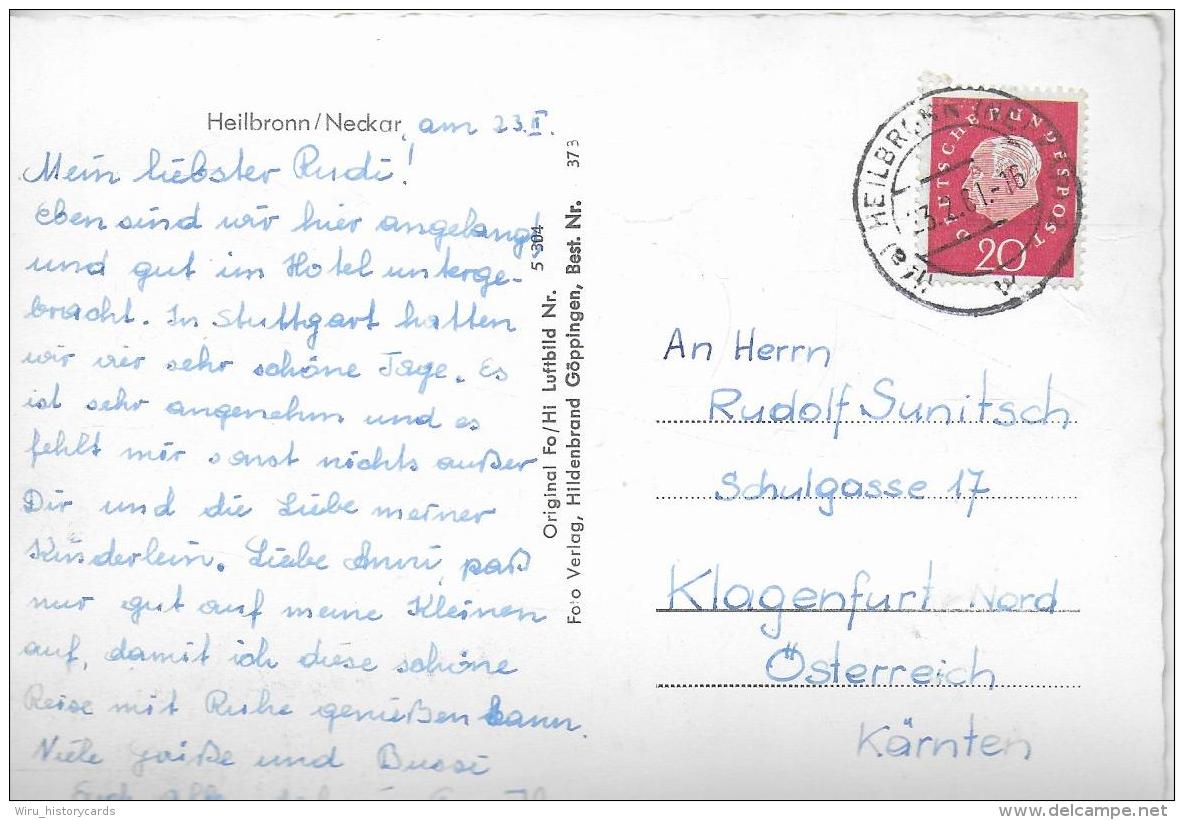 Heilbronn/Neckar, am 23.II.
Mein liebster Rudi!
Eben sind wir hier angelangt
und gut im Hotel unterge-
bracht. In Stuttgart hatten
wir vier sehr schöne Tage. Es
ist sehr angenehm und es
fehlt mir sonst nichts außer
Dir und die Liebe meiner
Kinderlein. Liebe Anni, paß
nur gut auf meine Kleinen
auf, damit ich diese schöne
Reise mit Ruhe genießen kann.
Viele Grüße und Bussi
Euch
Original Fo/Hi Luftbild Nr. 5 304
Foto Verlag, Hildenbrand Göppingen, Best. Nr. 373
HEILBRONN
23.2.61.-16
DEUTSCHE BUNDESPOST
20
An Herrn
Rudolf Sunitsch
Schulgasse 17
Klagenfurt - Nord
Österreich
Kärnten
Wiru_historycards
delcampe.net